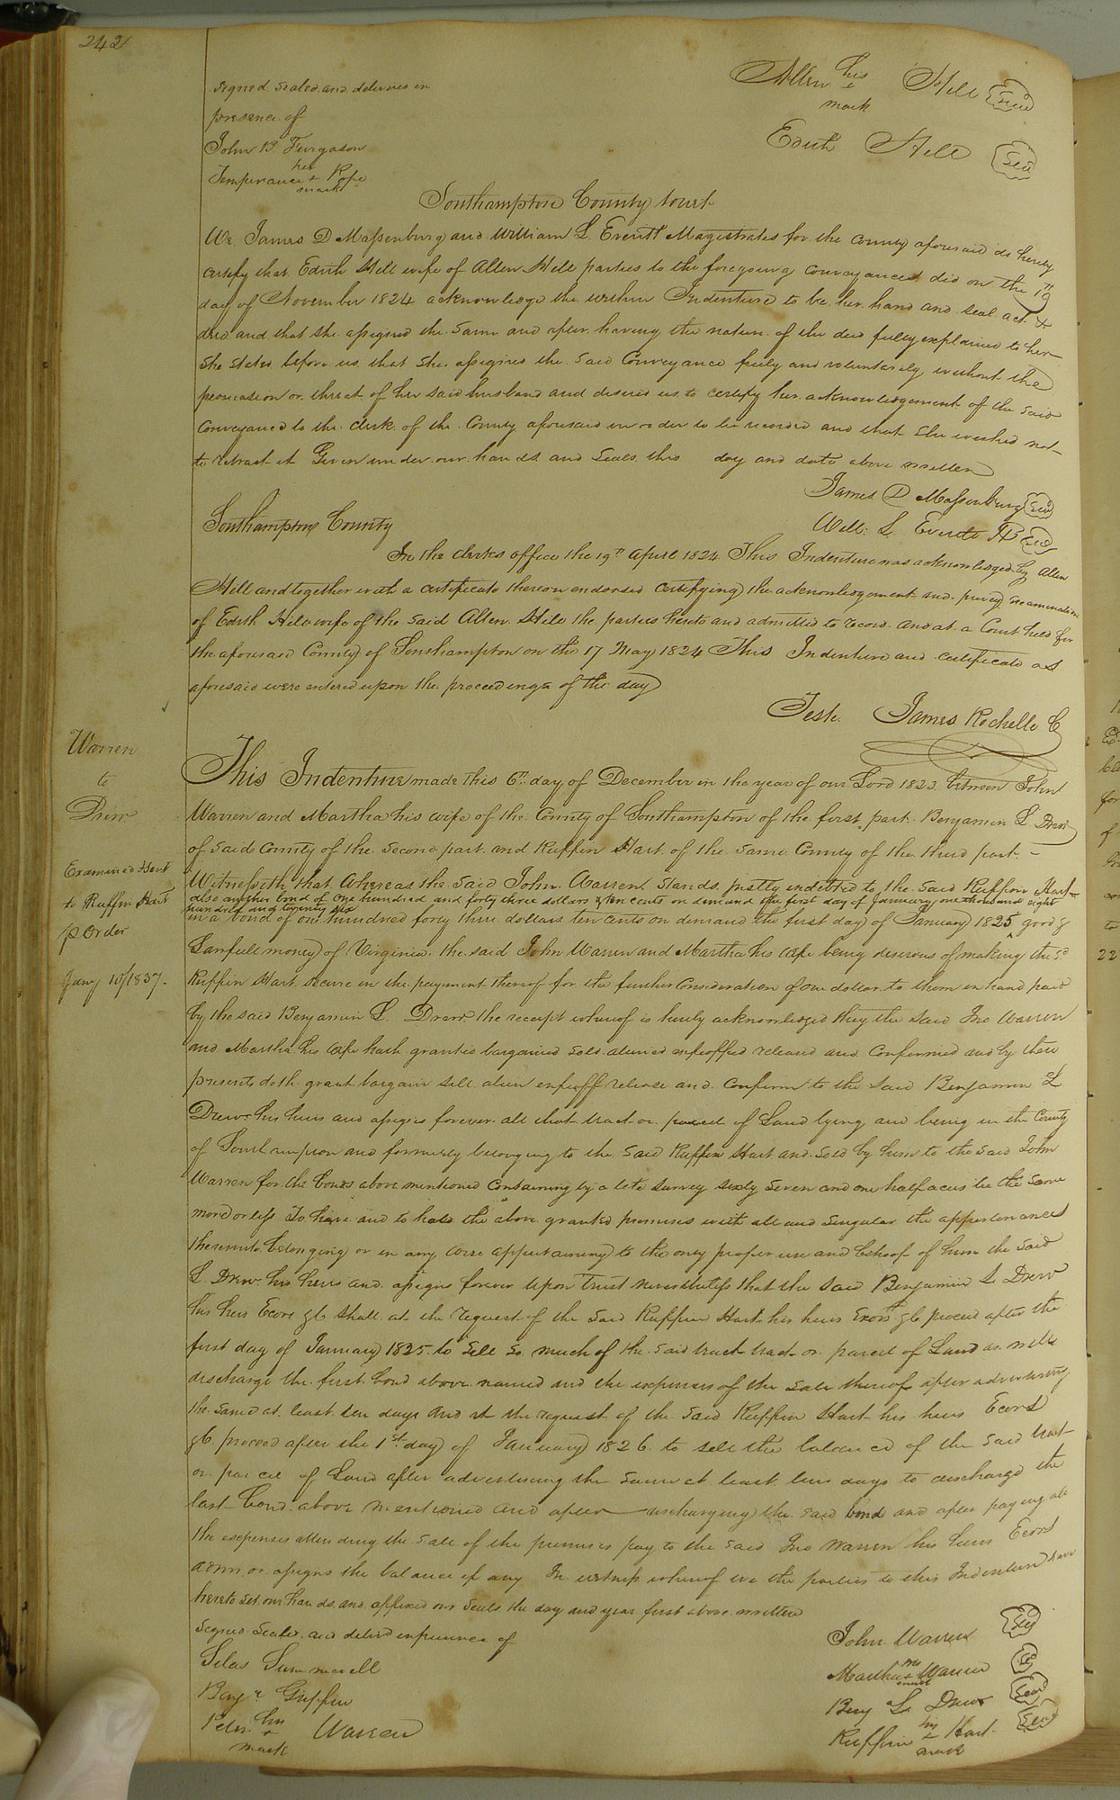 242
Signed Sealed and delivered in
presence of
John B Furgason
her
Temperance + Pope
mark
Allen his + mark Hill Seal
Edith Hill Seal
Southampton County Court
We James D Massenburg and William L Everitt Magistrates for the County aforesaid do hereby
certify that Edith Hill wife of Allen Hill parties to the foregoing conveyance did on the 19th
day of November 1824 acknowledge the within Indenture to be her hand and seal act &
deed and that she assigned the same and after having the nature of the deed fully explained to her
She stated before us that she assigned the said Conveyance freely and voluntarily without the
persuasion or threat of her said husband and desired us to certify her acknowledgement of the said
Conveyance to the clerk of the County aforesaid in order to be recorded and that she wished not
to retract it Given under our hands and Seals this day and date above written
James D Massenburg Seal
Will: L. Everitt Seal
Southampton County
In the clerks office the 19th April 1824 This Indenture was acknowledged by Allen
Hill and together with a certificate thereon endorsed certifying the acknowledgement and privey examination
of Edith Hill wife of the said Allen Hill the parties hereto and admitted to record and at a Court held for
the aforesaid County of Southampton on the 17 May 1824 This Indenture and certificate as
aforesaid were entered upon the proceedings of the day
Teste. James Rochelle C
Warren
to
Drew
Examined
to Ruffin Hart
p Order
Jany 10/1837.
This Indenture made this 6th day of December in the year of our Lord 1823 between John
Warren and Martha his wife of the County of Southampton of the first part Benjamin L Drew
of said County of the second part and Ruffin Hart of the same County of the third part. –
Witnesseth that whereas the said John Warren stands justly indebted to the said Ruffin Hart
also another bond of one hundred and forty three dollars & ten cents on demand the first day of January one thousand eight
hundred and twenty six
in a bond of one hundred forty three dollars ten cents on demand the first day of January 1825 good &
Lawfull money of Virginia. the said John Warren and Martha his wife being desirous of making the sd
Ruffin Hart secure in the payment thereof for the further Consideration of one dollar to them in hand paid
by the said Benjamin L. Drew the receipt whereof is hereby acknowledged they the said Jno Warren
and Martha his wife hath granted bargained sold aliened enfeoffed released and Confirmed and by these
presents doth grant bargain sell alien enfeoff release and Confirm to the said Benjamin L
Drew his heirs and assigns forever all that tract or parcel of Land lying and being in the County
of Southampton and formerly belonging to the said Ruffin Hart and sold by him to the said John
Warren for the bonds above mentioned Containing by a late survey sixty seven and one half acres be the same
more or less To have and to hold the above granted premises with all and singular the appertenances
thereunto belonging or in any wise appertaining to the only proper use and behoof of him the said
L. Drew his heirs and assigns forever Upon Trust nevertheless that the said Benjamin L Drew
his heirs Ecors &c shall at the request of the said Ruffin Hart his heirs Exors &c proceed after the
first day of January 1825 to sell so much of the said tract tract or parcel of Land as will
discharge the first bond above named and the expences of the sale thereof after advertising
the same at least ten days and at the request of the said Ruffin Hart his heirs Ecors
&c. proceed after the 1st day of January 1826 to sell the balance of the said tract
or parcel of Land after advertising the same at least ten days to discharge the
last bond above mentioned and after discharging the said bond and after paying all
the expenses attending the sale of the premises pay to the said Jno Warren his heirs Ecors
admrs or assigns the balance if any In witness whereof we the parties to this Indenture have
hereto set our hands and affixed our Seals the day and year first above written
Signed Seald and deliverd in presence of
Silas Summerell
Benjn Griffin
Peter his + mark Warren
John Warren Seal
Martha her + mark Warren Seal
Benj L Drew Seal
Ruffin his + mark Hart Seal
22